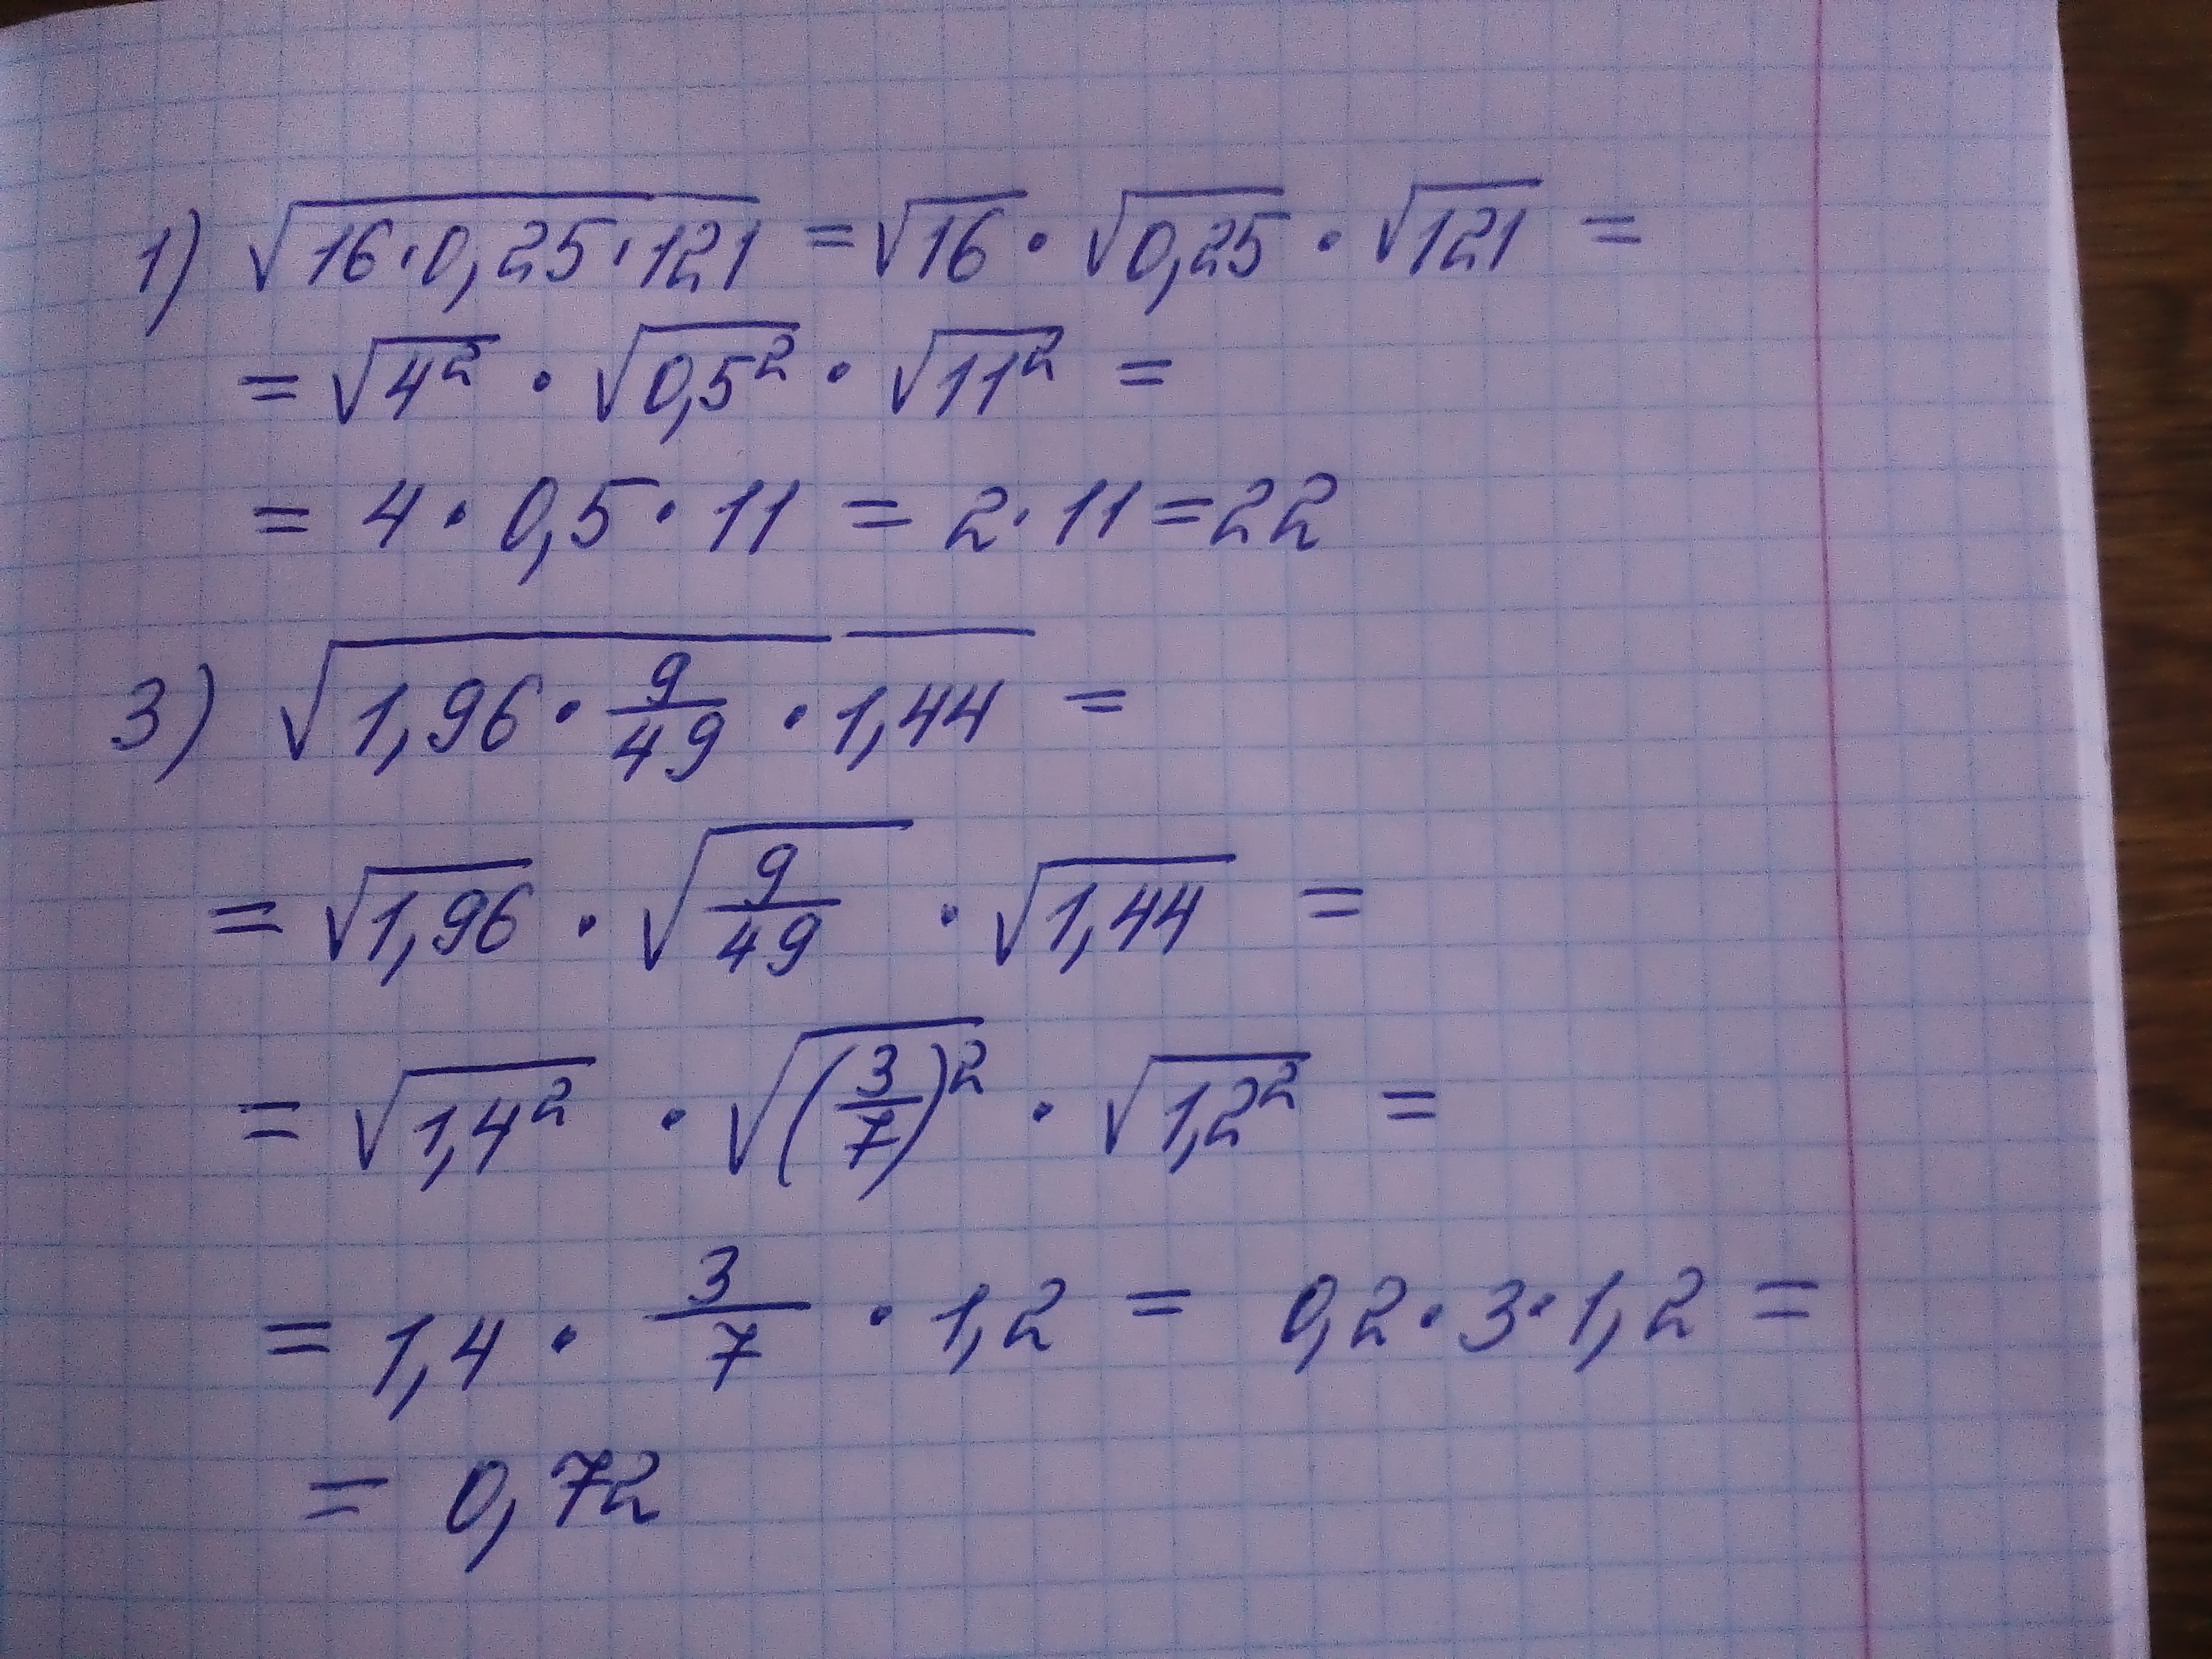 1) √16·0,25·121 = √16 · √0,25 · √121 =
= √4² · √0,5² · √11² =
= 4 · 0,5 · 11 = 2 · 11 = 22
3) √1,96 · 9/49 · 1,44 =
= √1,96 · √9/49 · √1,44 =
= √1,4² · √(3/7)² · √1,2² =
= 1,4 · 3/7 · 1,2 = 0,2 · 3 · 1,2 =
= 0,72